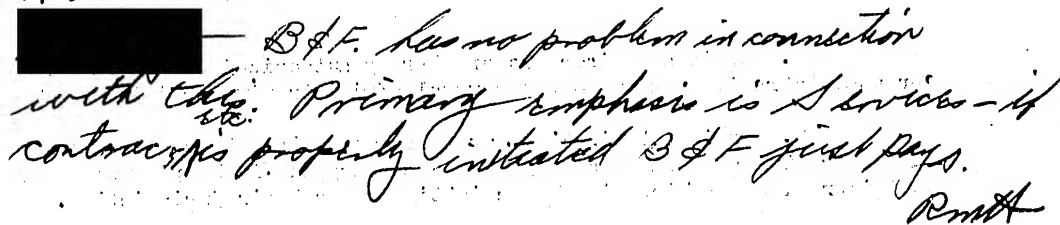 — B & F. has no problem in connection
with this. Primary emphasis is Services – if
etc.
contract, is properly initiated B & F just pays.